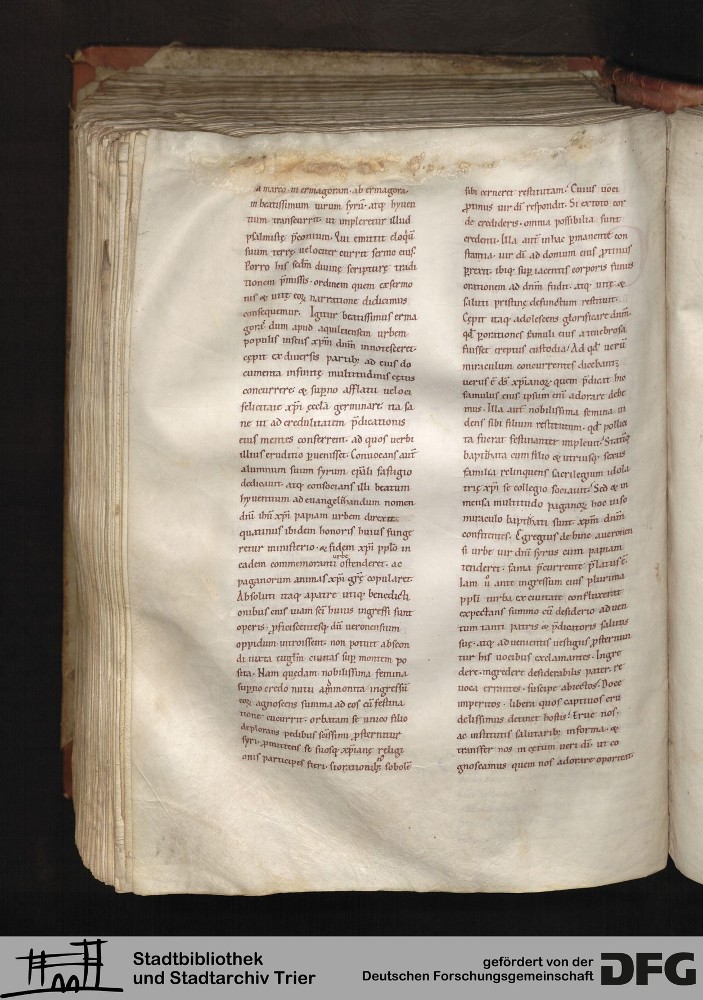 a marco in ermagoram. ab ermagora.
in beatissimum uirum syrū. atq; hyuen
tium transeurrit. ut impleretur illud
psalmistę p̄conium. Qui emittit eloqū
suum terrę. uelociter currit sermo eius.
Porro his scdm diuinę scripturę tradi
tionem p̄missis. ordinem quem ex sermo
nis & uitę eoꝝ narratione didicimus
consequemur. Igitur beatissimus erma
goras dum apud aquileiensem urbem
populis inscius xp̄m dn̄m innotesceret.
cępit ex diuersis partib; ad eius do
cumenta infinitę multitudinis cętus
concurrere. & sup̄no afflatu ueloci
felicitate xp̄i ęccła germinare. ita sa
ne ut ad credulitatem p̄dicationis
eius mentes conferrent. ad quos uerbi
illius eruditio p̄uenisset. Conuocans aut̄
alumnum suum syrum ep̄ali fastigio
dedicauit. atq; consocians illi beatum
hyuentium ad euangelizandum nomen
dn̄i ih̄u xp̄i papiam urbem direxit.
quatinus ibidem honoris huius funge
retur ministerio. & fidem xp̄i pp̄lo in
eadem commemoranti urbe ostenderet. ac
paganorum animas xp̄i gregi copularet.
Absoluti itaq; a patre utiq; benedicti
onibus eius uiam sc̄i huius ingressi sunt
operis. p̄ficiscentesq; dū ueronensium
oppidum introissent. non potuit abscon
di iuxta euglm̄ ciuitas sup montem po
sita. Nam quędam nobilissima femina
sup̄no credo nutu ammonita ingressū
eoꝝ agnoscens summa ad eos cū festina
tione cucurrit. orbatam se unico filio
deplorans pedibus sc̄issimi p̄sternitur
syri. p̄mittens se suosq; xp̄ianę religi
onis participes fieri. si orationib; sobolē
sibi cerneret restitutam. Cuius uoci
p̄tinus uir dī respondit. Si ex toto cor
de credideris. omnia possibilia sunt
credenti. Illa aut̄ in hac p̄manente con
stantia. uir dī ad domum eius p̄tinus
p̄rexit. ibiq; sup iacentis corporis funus
orationem ad dn̄m fudit. atq; uitę &
saluti pristinę defunctum restituit.
Cępit itaq; adolescens glorificare dn̄m.
qd̄ p orationes famuli eius a tenebrosa
fuisset ereptus custodia. Ad qd̄ uerū
miraculum concurrentes dicebant;
uerus ē ds̄ xp̄ianoꝝ. quem p̄dicat hic
famulus eius. ipsum eni adorare debe
mus. Illa aut̄ nobilissima femina ui
dens sibi filium restitutum. qd̄ pollici
ta fuerat festinanter impleuit. Statimq;
baptizata cum filio & utriusq; sexus
familia relinquens sacrilegium idola
trię xp̄i se collegio sociauit. Sed & in
mensa multitudo paganoꝝ hoc uiso
miraculo baptizati sunt. xp̄m dn̄m
confitentes. Egregius dehinc a ueronen
si urbe uir dn̄i syrus cum papiam
tenderet. fama p̄currente p̄latus ē.
Iam u̇ ante ingressum eius plurima
pp̄li turba ex ciuitate confluxerat
expectans summo cū desiderio aduen
tum tanti patris & p̄dicatoris salutis
suę. atq; aduenientis uestigiis p̄sternun
tur his uocibus exclamantes. Ingre
dere. ingredere desiderabilis pater. re
uoca errantes. suscipe abiectos. Doce
imperitos. libera quos captiuos cru
delissimus detinet hostis. Erue nos.
ac institutis salutarib; informa. &
transfer nos in cętum ueri dī. ut co
gnoscamus quem nos adorare oporteat.
Stadtbibliothek
und Stadtarchiv Trier
gefördert von der
Deutschen Forschungsgemeinschaft
DFG